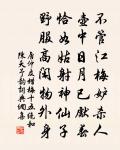 不管江梅妒杀人
壶中日月已献春
恰如姑射神仙子
野服高闲物外身
唐仲友腊梅十五绝和
陈天予韵词典网集